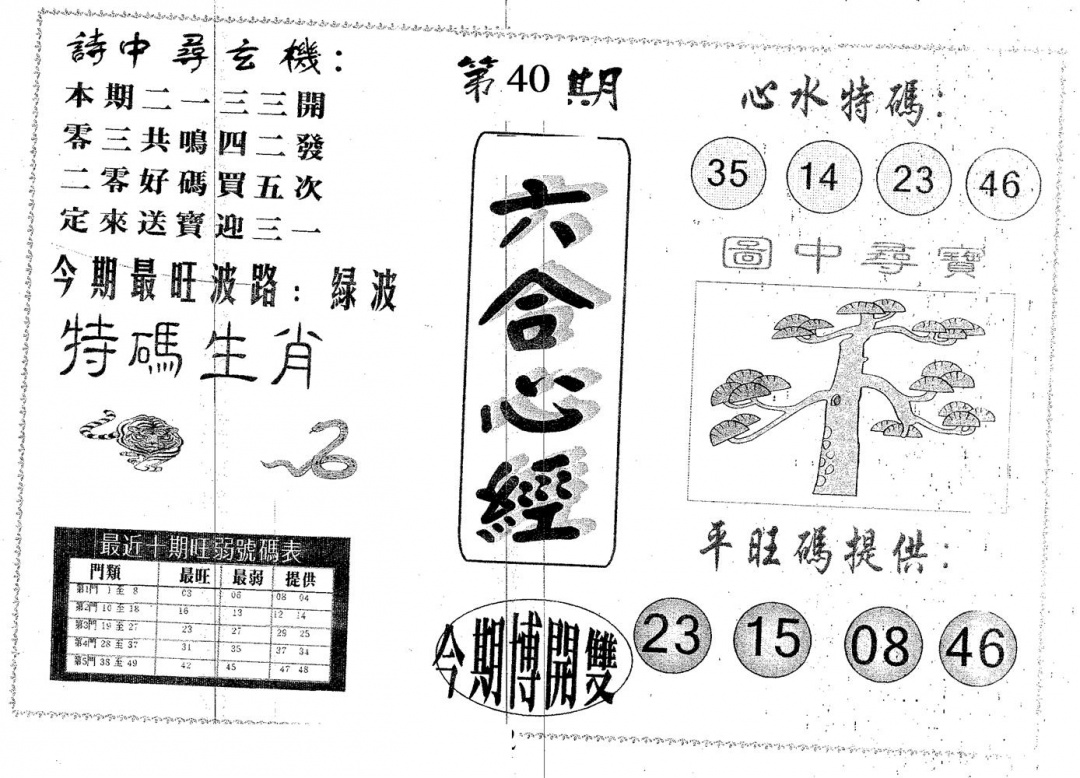 詩中尋玄機：
本期二一三三開
零三共鳴四二發
二零好碼買五次
定來送寶迎三一
今期最旺波路：綠波
特碼生肖
最近十期旺弱號碼表
門類 最旺 最弱 提供
第1門 1 至 8 03 06 08 04
第2門 10 至 18 16 13 12 14
第3門 19 至 27 23 27 26 25
第4門 28 至 37 31 35 37 34
第5門 38 至 49 42 45 47 48
第40期
六合心經
今期博開雙
心水特碼：
35 14 23 46
圖中尋寶
平旺碼提供：
23 15 08 46